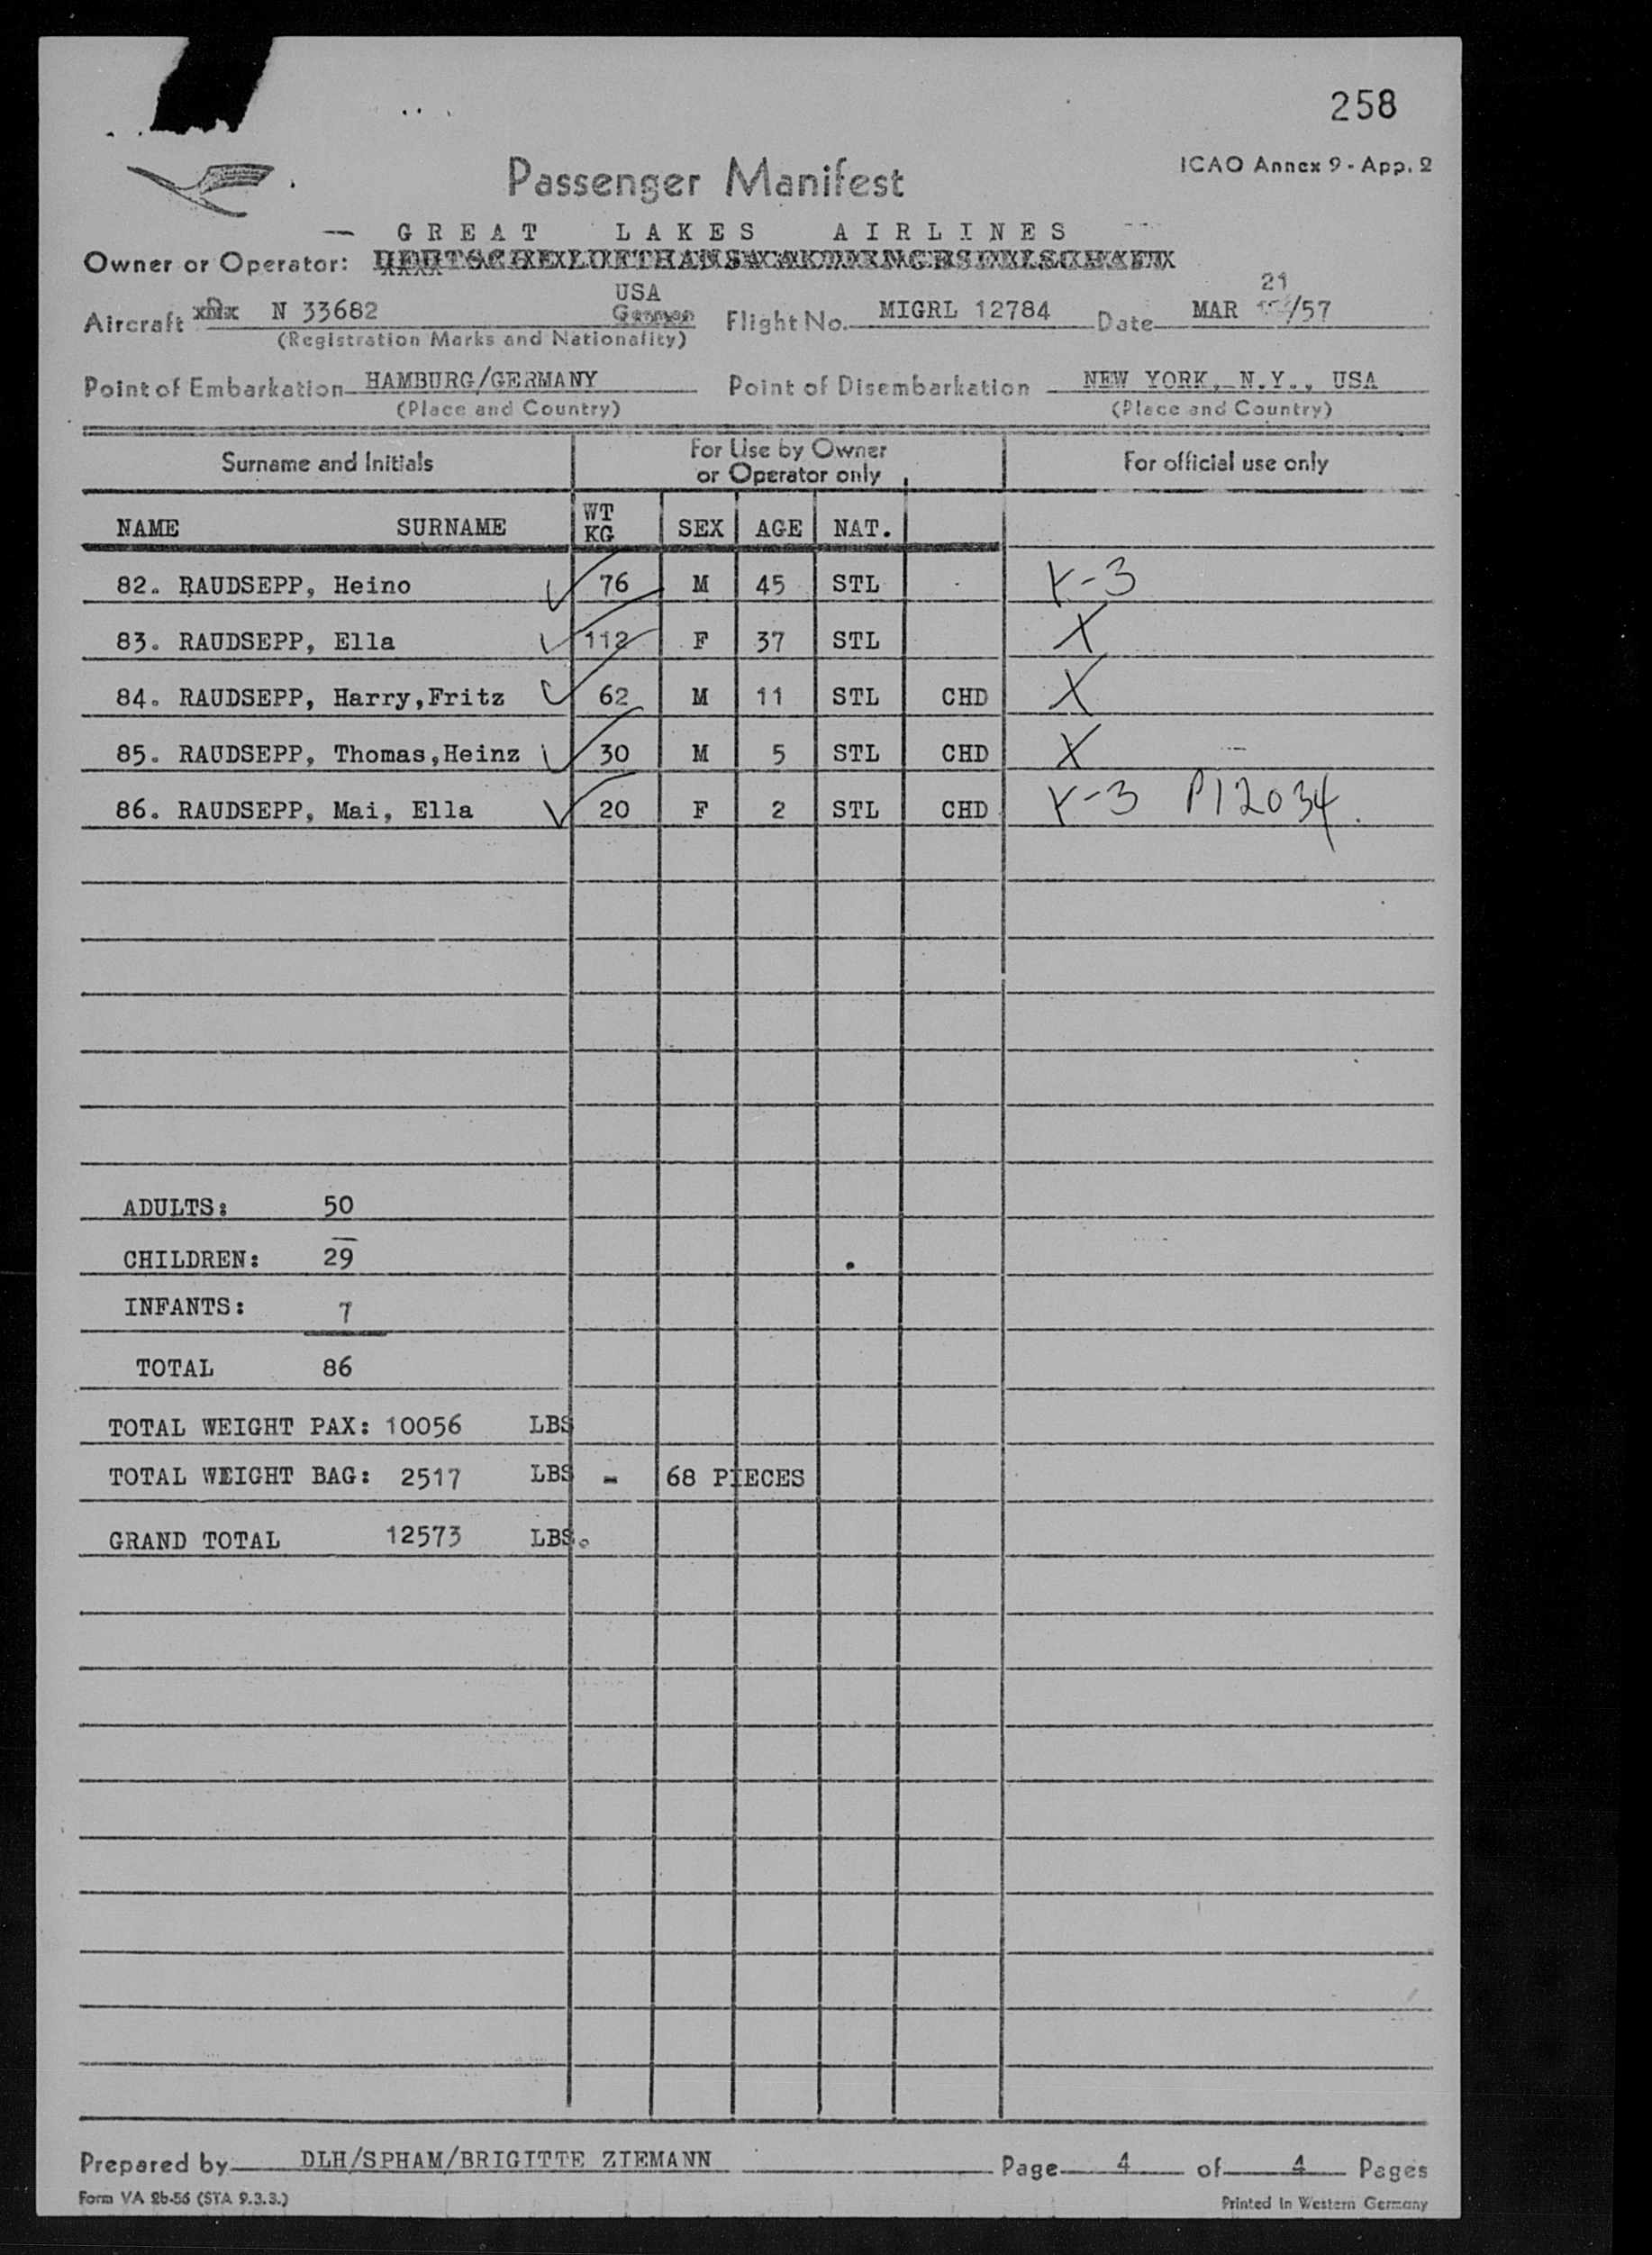 258
ICAO Annex 9 - App. 2
Passenger Manifest
— GREAT LAKES AIRLINES
Owner or Operator:
Aircraft N 33682 USA German
(Registration Marks and Nationality)
Flight No. MIGRL 12784 Date MAR 21/57
Point of Embarkation HAMBURG/GERMANY Point of Disembarkation NEW YORK, N.Y., USA
(Place and Country) (Place and Country)
Surname and Initials For Use by Owner or Operator only For official use only
NAME SURNAME WT KG SEX AGE NAT.
82. RAUDSEPP, Heino 76 M 45 STL X-3
83. RAUDSEPP, Ella 112 F 37 STL X
84. RAUDSEPP, Harry,Fritz 62 M 11 STL CHD X
85. RAUDSEPP, Thomas,Heinz 30 M 5 STL CHD X
86. RAUDSEPP, Mai, Ella 20 F 2 STL CHD X-3 P12034.
ADULTS: 50
CHILDREN: 29
INFANTS: 7
TOTAL 86
TOTAL WEIGHT PAX: 10056 LBS
TOTAL WEIGHT BAG: 2517 LBS - 68 PIECES
GRAND TOTAL 12573 LBS.
Prepared by DLH/SPHAM/BRIGITTE ZIEMANN Page 4 of 4 Pages
Form VA 2b-56 (STA 9.3.3.) Printed in Western Germany